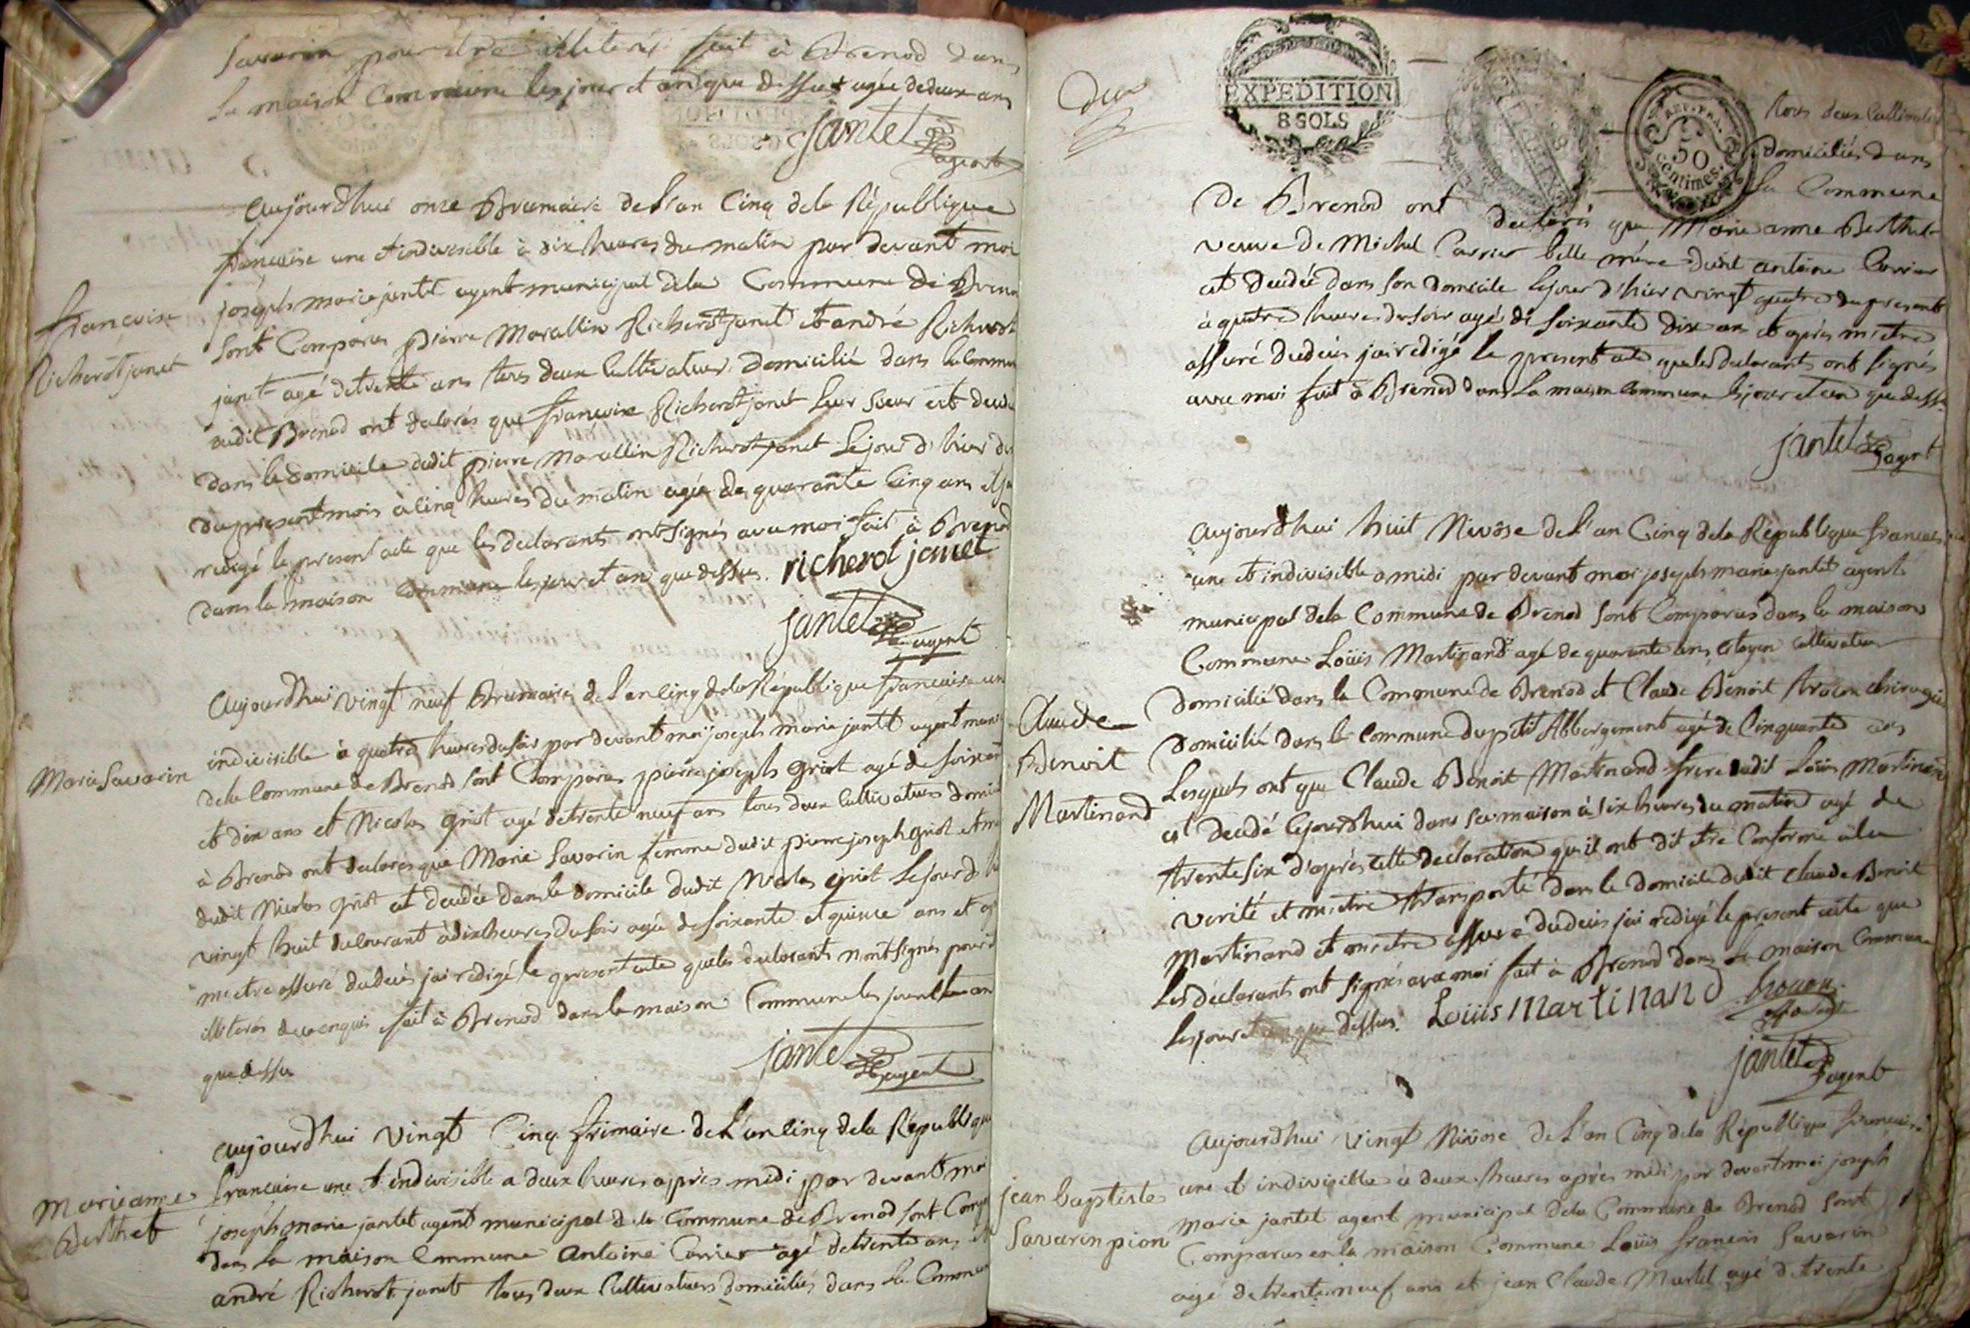 Savarin pour être illiterés fait à Brenod dans
la maison Commune les jour et an que dessus agée de deux ans
jantet
agent
aujourdhui onze Brumaire de l'an Cinq dela République
francaise une et indivisible à dix heures du matin par devant moi
françoise
Richerot janet
joseph marie jantet agent municipal dela Commune de Breno
sont Comparus pierre Marallin Richerot janet et andré Richerot
janet agé de trente ans tous deux Cultivateurs domicilié dans la Commu
audit Brenod ont declarés que françoise Richerot janet leur sœur est decedé
dans le domicile dudit pierre Marallin Richerot janet le jour d'hier
du present mois à Cinq heures du matin agée de quarante Cinq ans et j'ai
redigé le present acte que les declarants ont signés avec moi fait à Brenod
dans la maison Commune les jour et an que dessus. richerot janet
jantet
agent
aujourdhui vingt neuf Brumaire de l'an Cinq dela République francaise une
Marie Savarin
indivisible à quatre heures du soir par devant moi joseph marie jantet agent muni
dela Commune de Brenod sont Comparus pierre joseph griot agé de soixante
et dix ans et Nicolas griot agé de trente neuf ans tous deux Cultivateurs domi
à Brenod ont declarés que Marie Savarin femme dudit pierre joseph griot et
dudit Nicolas griot est decedée dans le domicile dudit Nicolas griot le jour d'hi
vingt huit du Courant à dix heures du soir agée de soixante et quinze ans et
m'etre assuré du decès jai redigé le present acte que les declarants n'ont signés pour
illiterés de ce enquis fait à Brenod dans la maison Commune les jour et an
que dessu
jantet
agent
aujourdhui vingt Cinq frimaire de l'an Cinq dela Républiqu
Marie anne
Berthet
francaise une et indivisible a deux heures après midi par devant moi
joseph marie jantet agent municipal dela Commune de Brenod sont Comp
dans la maison Commune antoine Carrier agé de trente ans et
andré Richerot janet tous deux Cultivateurs domiciliés dans la Commun
deux
EXPEDITION
8 SOLS
REP. FRA.
50
Centimes
tous deux Cultivate
domiciliés dans
la Commune
de Brenod ont declarés que Marie anne Berthet
veuve de Michel Carrier belle mère dudit antoine Carrier
est decedée dans son domicile le jour d'hier vingt quatre du present
à quatre heures du soir agé de soixante dix ans et après m'etre
assuré du decès jai redigé le present acte que les declarants ont signés
avec moi fait à Brenod dans la maison Commune les jour et an que dessus
jantet
agent
aujourdhui huit Nivôse de l'an Cinq dela République francaise
une et indivisible a midi par devant moi joseph marie jantet agent
municipal dela Commune de Brenod sont Comparus dans la maison
Commune Loüis Martinand agé de quarante ans Citoyen cultivateur
Claude
Benoit
Martinand
domicilié dans la Commune de Brenod et Claude Benoit chirurgien
domicilié dans la Commune du petit Abbergement agé de Cinquante ans
Lesquels ont que Claude Benoit Martinand frere dudit Loüis Martinand
est decedé cejourdhui dans sa maison à six heures du matin agé de
trente six d'après cette declaration qu'il ont dit etre Conforme à la
verité et m'etre transporté dans le domicile dudit Claude Benoit
Martinand et m'etre assuré du decès jai redigé le present acte que
les declarants ont signés avec moi fait à Brenod dans la maison Commune
les jour et an que dessus. Loüis Martinand
jantet
agent
aujourdhui vingt Nivose de l'an Cinq dela République francaise
jean baptiste
Savarin pion
une et indivisible à deux heures après midi par devant moi joseph
marie jantet agent municipal dela Commune de Brenod sont
Comparus en la maison Commune Loüis francois Savarin
agé de trente neuf ans et jean Claude Martel agé de trente